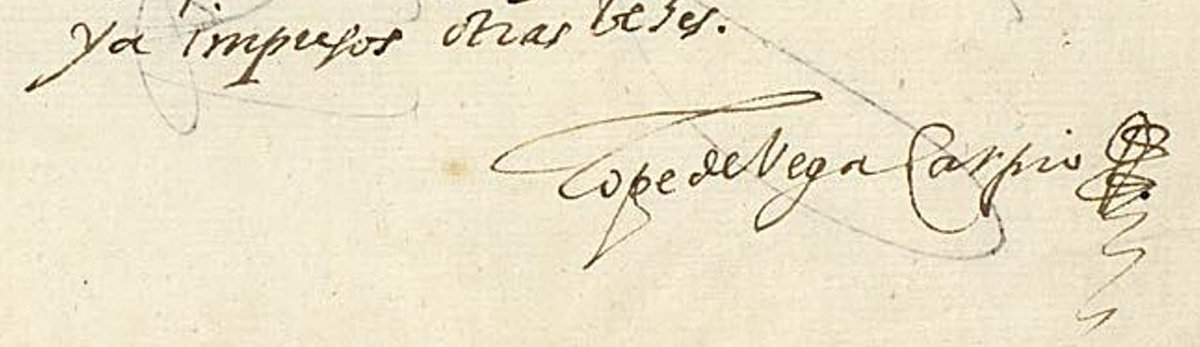 ya impresos otras beses.
Lope de Vega Carpio